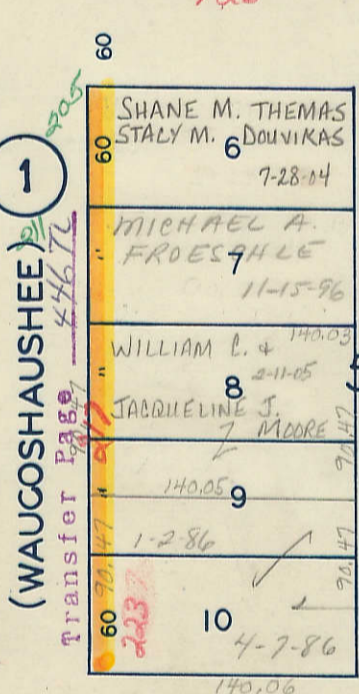 60
60
1
(WAUCOSHAUSHEE)
Transfer Page 446 TL
SHANE M. THEMAS
STACY M. DOUVIKAS
6
7-28-04
"
MICHAEL A.
FROESCHLE
7
11-15-96
"
WILLIAM C. &
140.03
2-11-05
8
JACQUELINE J.
MOORE
90.47
217
"
140.05
9
1-2-86
90.47
90.47
60
223
10
90.47
4-7-86
140.06